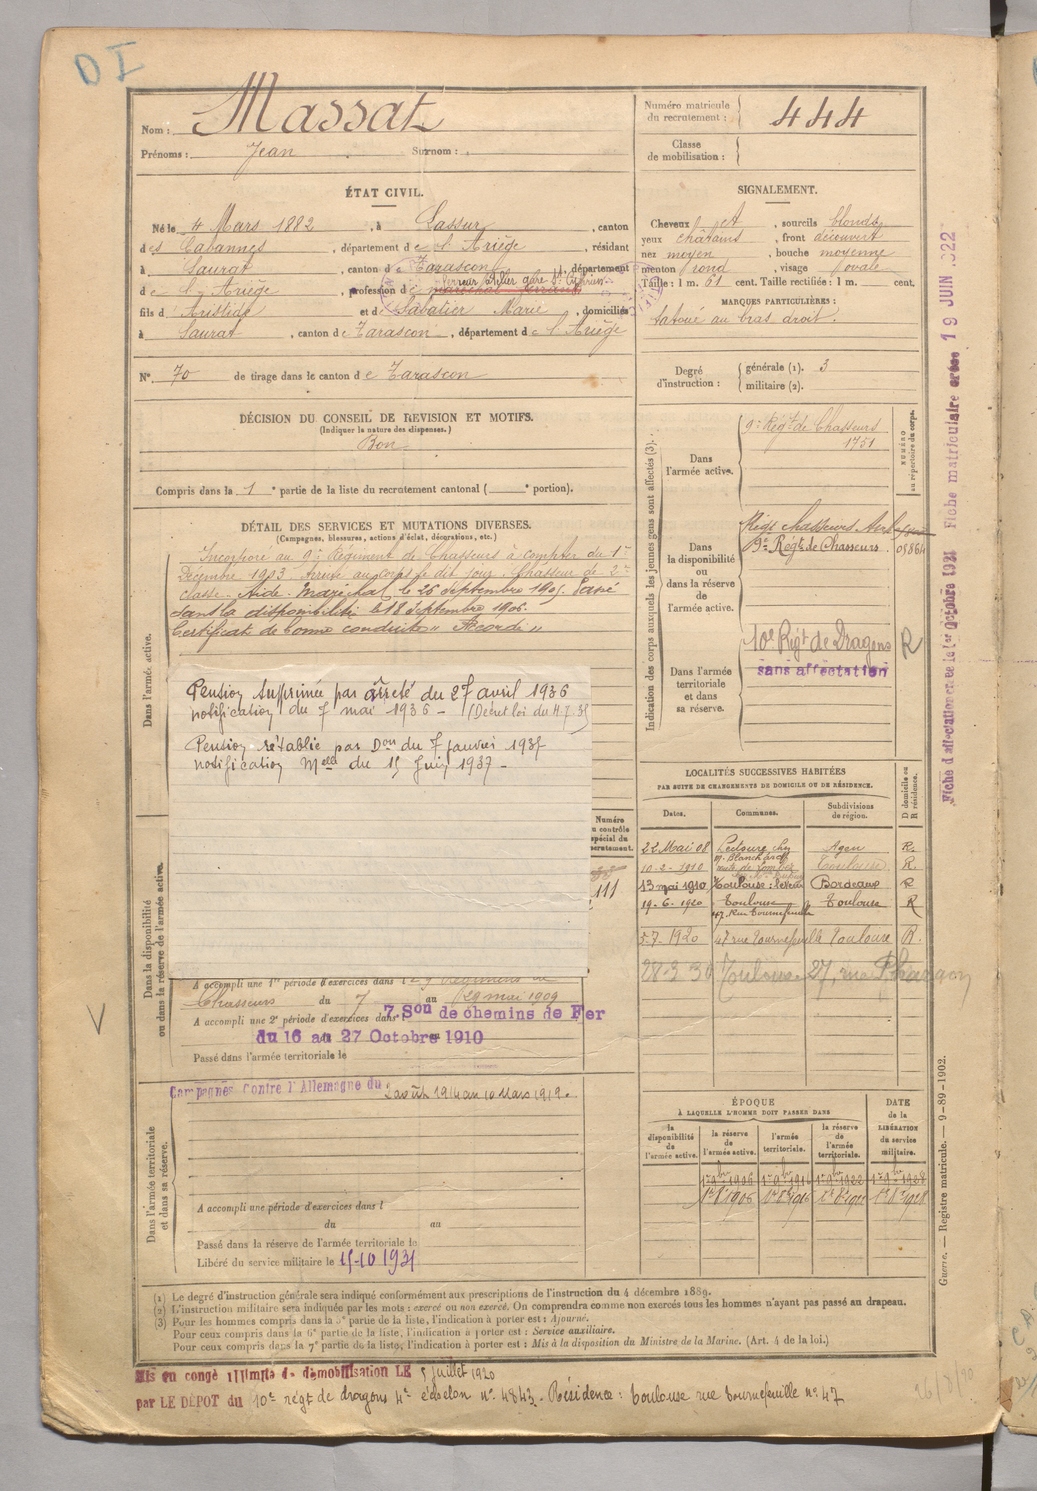 D I
Nom : Massat
Prénoms : Jean Surnom : .
Numéro matricule
du recrutement : 444
Classe
de mobilisation :
ÉTAT CIVIL.
Né le 4 Mars 1882, à Lassur, canton
des Cabannes, département de l'Ariège, résidant
à Saurat, canton de Tarascon, département
de l'Ariège, profession de
fils d' et de Sabatier Marie, domiciliés
à Saurat, canton de Tarascon, département de l'Ariège
N° 70 de tirage dans le canton de Tarascon
SIGNALEMENT.
Cheveux et, sourcils blonds
yeux châtains, front découvert
nez moyen, bouche moyenne
menton rond, visage ovale
Taille : 1 m. 61 cent. Taille rectifiée : 1 m. cent.
MARQUES PARTICULIÈRES :
tatoué au bras droit.
Degré
d'instruction :
générale (1). 3
militaire (2).
DÉCISION DU CONSEIL DE REVISION ET MOTIFS.
(Indiquer la nature des dispenses.)
Bon
Compris dans la 1e partie de la liste du recrutement cantonal ( e portion).
DÉTAIL DES SERVICES ET MUTATIONS DIVERSES.
(Campagnes, blessures, actions d'éclat, décorations, etc.)
Dans l'armée active.
Incorporé au 9e Régiment de Chasseurs à compter du 1er
Décembre 1903. Arrivé au corps le dit jour. Chasseur de 2e
classe. Aide Maréchal le 26 septembre 1905. Passé
dans la disponibilité le 18 septembre 1906.
Certificat de bonne conduite "Accordé"
Pension supprimée par arrêté du 27 avril 1936
notification du 7 mai 1936 - (Décret loi du
Pension rétablie par Don du 7 janvier 1937
notification Melle du 15 Juin 1937 -
Numéro
u contrôle
spécial du
recrutement.
111
Dans la disponibilité
ou dans la réserve de l'armée active.
A accompli une 1re période d'exercices dans l
Chasseurs du 7 au 29 mai 1909
A accompli une 2e période d'exercices dans l 7. Son de chemins de Fer
du 16 au 27 Octobre 1910
Passé dans l'armée territoriale le
V
Dans l'armée territoriale
et dans sa réserve.
Campagnes Contre l'Allemagne du 2 août 1914 au 10 Mars 1919.
A accompli une période d'exercices dans l
du au
Passé dans la réserve de l'armée territoriale le
Libéré du service militaire le 15-10 1931
Indication des corps auxquels les jeunes gens sont affectés (3).
NUMÉRO
au répertoire du corps.
Dans
l'armée active.
9e Régt de Chasseurs
1751
Dans
la disponibilité
ou
dans la réserve
de
l'armée active.
Régt Chasseurs
9e Régt de Chasseurs
Dans l'armée
territoriale
et dans
sa réserve.
10e Régt de Dragons R
sans affectation
LOCALITÉS SUCCESSIVES HABITÉES
PAR SUITE DE CHANGEMENTS DE DOMICILE OU DE RÉSIDENCE.
Dates. Communes. Subdivisions
de région. D domicile ou
R résidence.
22 Mai 08 Lectoure chez Agen R.
M. Blanchard
10-2-1910 Toulouse R.
13 mai 1910 Toulouse Bordeaux R
19.6.1920 Toulouse Toulouse R
47, Rue Tournefeuille
5.7.1920 47 rue Tournefeuille Toulouse R.
Toulouse 27, rue
ÉPOQUE
À LAQUELLE L'HOMME DOIT PASSER DANS
la
disponibilité
de
l'armée active.
la réserve
de
l'armée active.
l'armée
territoriale.
la réserve
de
l'armée
territoriale.
DATE
de la
LIBÉRATION
du service
militaire.
Fiche d'affectation créée le 1er Octobre 1921 Fiche matriculaire créée 19 JUIN 1922
Guerre. — Registre matricule. — 9-89-1902.
(1) Le degré d'instruction générale sera indiqué conformément aux prescriptions de l'instruction du 4 décembre 1889.
(2) L'instruction militaire sera indiquée par les mots : exercé ou non exercé. On comprendra comme non exercés tous les hommes n'ayant pas passé au drapeau.
(3) Pour les hommes compris dans la 5e partie de la liste, l'indication à porter est : Ajourné.
Pour ceux compris dans la 6e partie de la liste, l'indication à porter est : Service auxiliaire.
Pour ceux compris dans la 7e partie de la liste, l'indication à porter est : Mis à la disposition du Ministre de la Marine. (Art. 4 de la loi.)
Mis en congé illimité de démobilisation LE 5 juillet 1920
par LE DÉPOT du 10e régt de dragons 4e échelon n° 4843. Résidence : Toulouse rue Tournefeuille n° 47